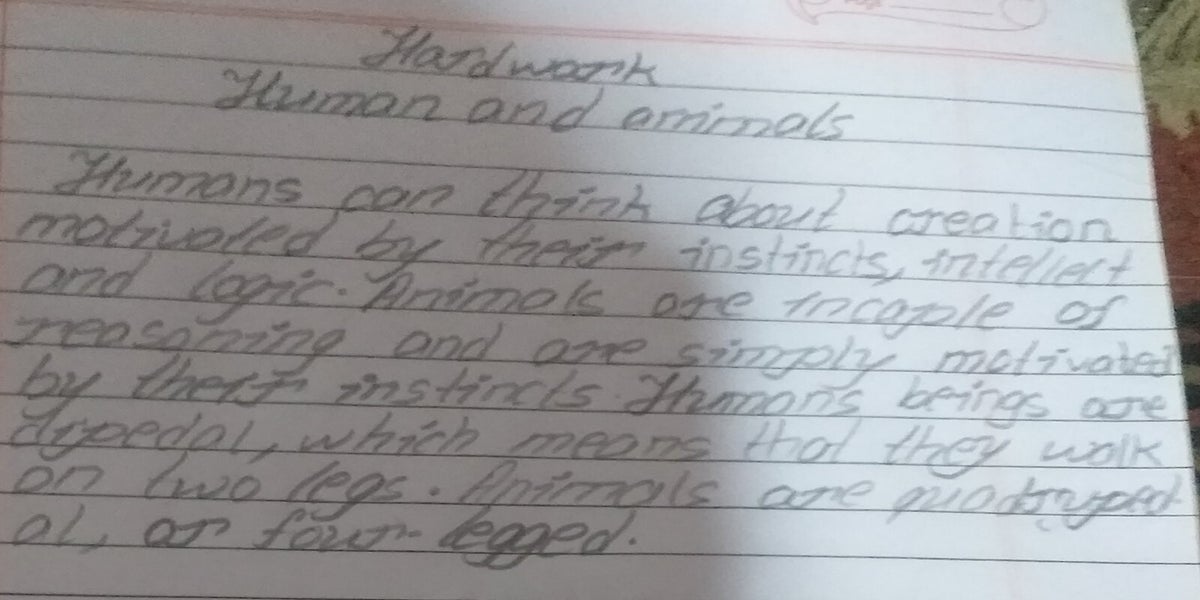 Hardwark
Human and animals
Humans can think about creation
motivated by their instincts, intellect
and logic. Animals are incaple of
reasoning and are simply motivated
by their instincts. Humans beings are
dipedal, which means that they walk
on two legs. Animals are quadryped
al, or four-legged.